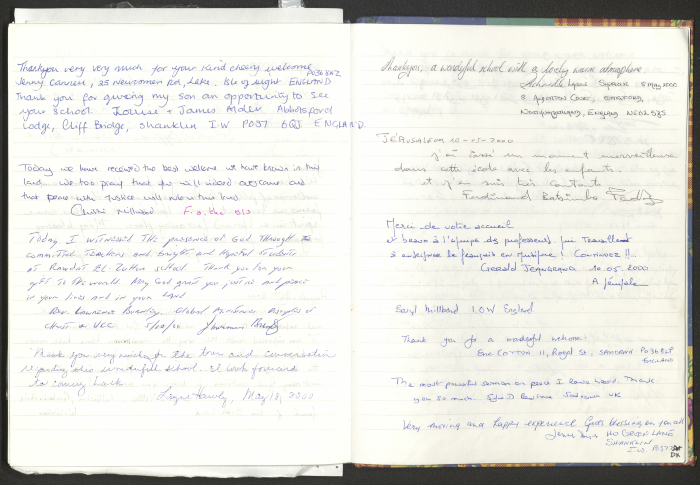 Thankyou very very much for your kind cheery welcome
PO36 8NZ
Jenny Carrier, 25 Newcomen Rd, Lake. Isle of Wight ENGLAND
Thank you for giving my son an opportunity to see
your school. Louise + James Alder Abbotsford
Lodge, Cliff Bridge, Shanklin I.W PO37 6QJ ENGLAND.
Today we have received the best welcome we have known in this
land... we too pray that you will indeed overcome and
that peace with Justice will return this land.
Chrissi Millward
Today I witnessed the presence of God through the
committed teachers and bright and hopeful students
of Rawdat El-Zuhur school. Thank you for your
gift to the world. May God grant you justice and peace
in your lives and in your land
Rev. Lawrence Burnley, Global Ministries Disciples of
Christ & UCC 5/10/00
Thank you very much for the tour and conversation
wonderful school. I look forward
to coming back.
May 18, 2000
Thankyou, a wonderful school with a lovely warm atmosphere
8 May 2000
England, NE62 5BS
JÉRUSALEM 10-05-2000
j'ai passé un moment merveilleux
dans cette école avec les enfants.
et j'en suis très contente
Ferdinand
Merci de votre accueil
et bravo à l'équipe des professeurs qui travaillent
à enseigner le français en musique! Continuez!!..
Gerald 10.05.2000
Millward I.O.W England
Thank you for a wonderful welcome.
COTTON 11, Royal St. SANDOWN PO36 8LP
ENGLAND
The most powerful sermon on peace I have heard. Thank
you so much. UK
Very moving and happy experience God's blessing on you all
GREEN LANE
SHANKLIN
I.W. PO37